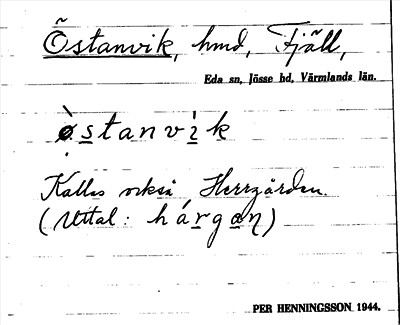 Östanvik, hmd, Fjäll,
Eda sn, Jösse hd, Värmlands län.
ø̀stanvìk
Kallas också Herrgården.
(Uttal: hárgaŋ)
PER HENNINGSSON 1944.